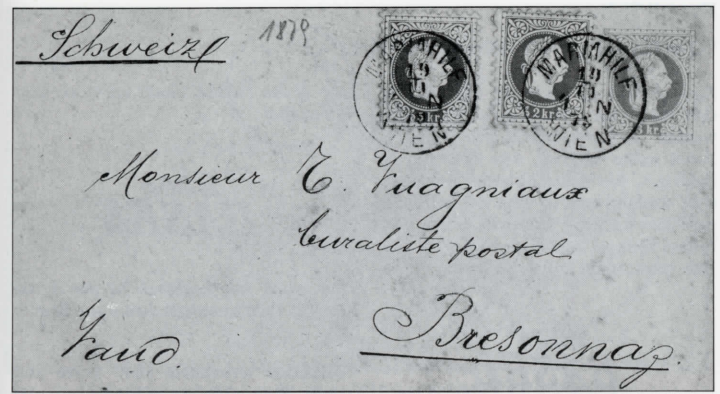 Schweiz
1879
MARIAHILF
19
11
WIEN
3 kr.
MARIAHILF
19
11
79
WIEN
2 kr.
kr.
Monsieur E. Vuagniaux
buraliste postal
Bresonnaz.
Vaud.